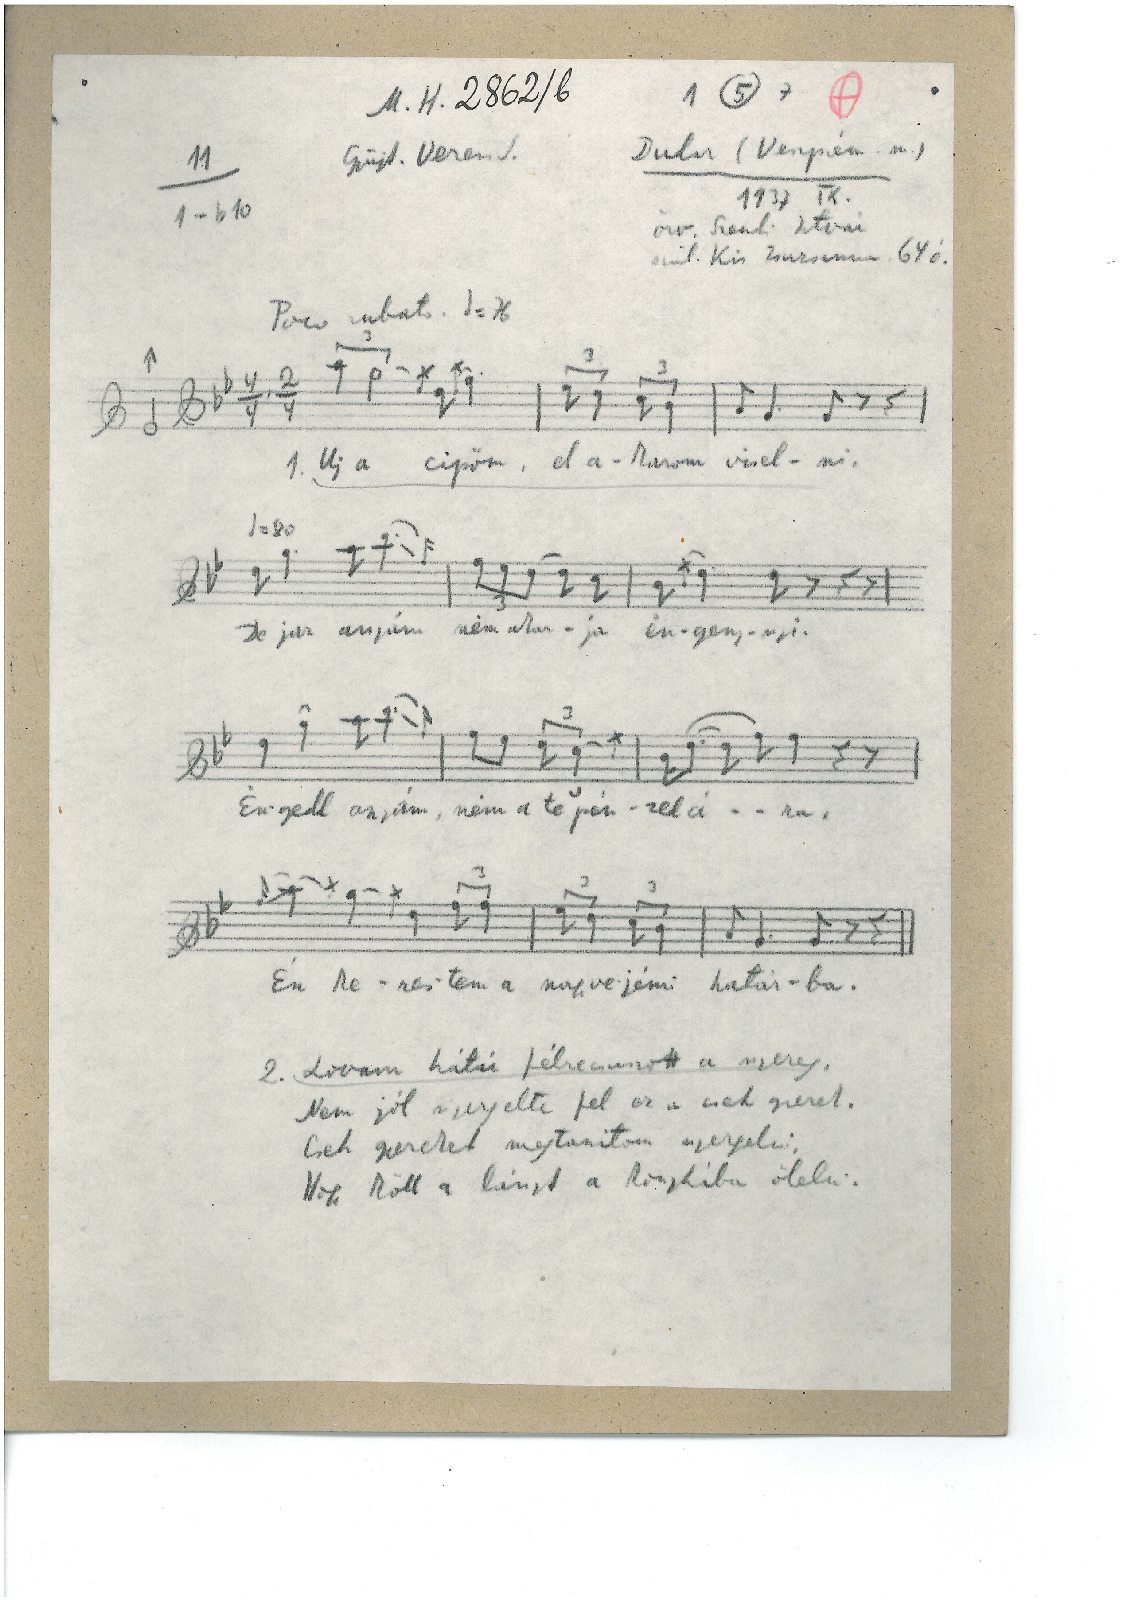 M. H. 2862/b
1 5 7
11
1 - b10
Gyüjt. Veress S.
Dudar (Veszprém m.)
1937 IX.
özv. Szenti
szül. Kis Zsuzsanna 64 é.
Poco rubato. = 76
4/4, 2/4
3 3 3
1. Uj a cipőm, el akarom visel-ni.
= 80
3
De jaz anyám nëm akar-ja ën-genynyi.
3
Ën-gedd anyám, nëm a te pén-zed á - - ra,
3 3 3
Én ke-res-tem a határ-ba.
2. Lovam hátú félrecsuszott a nyereg,
Nem jól nyergelte fel ez a cseh gyerek.
Cseh gyereket megtanítom nyergelni,
Hogy köll a lányt a konyhába ölelni.